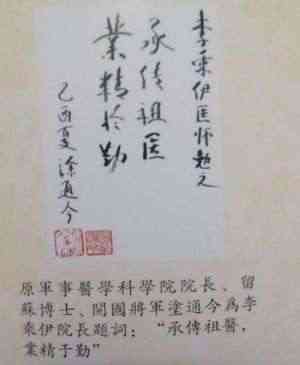 李乘伊医师题之
承传祖医
業精於勤
乙酉夏 涂通今
原軍事醫學科學院院長、留
蘇博士、開國將軍塗通今爲李
乘伊院長題詞：“承傳祖醫，
業精于勤”